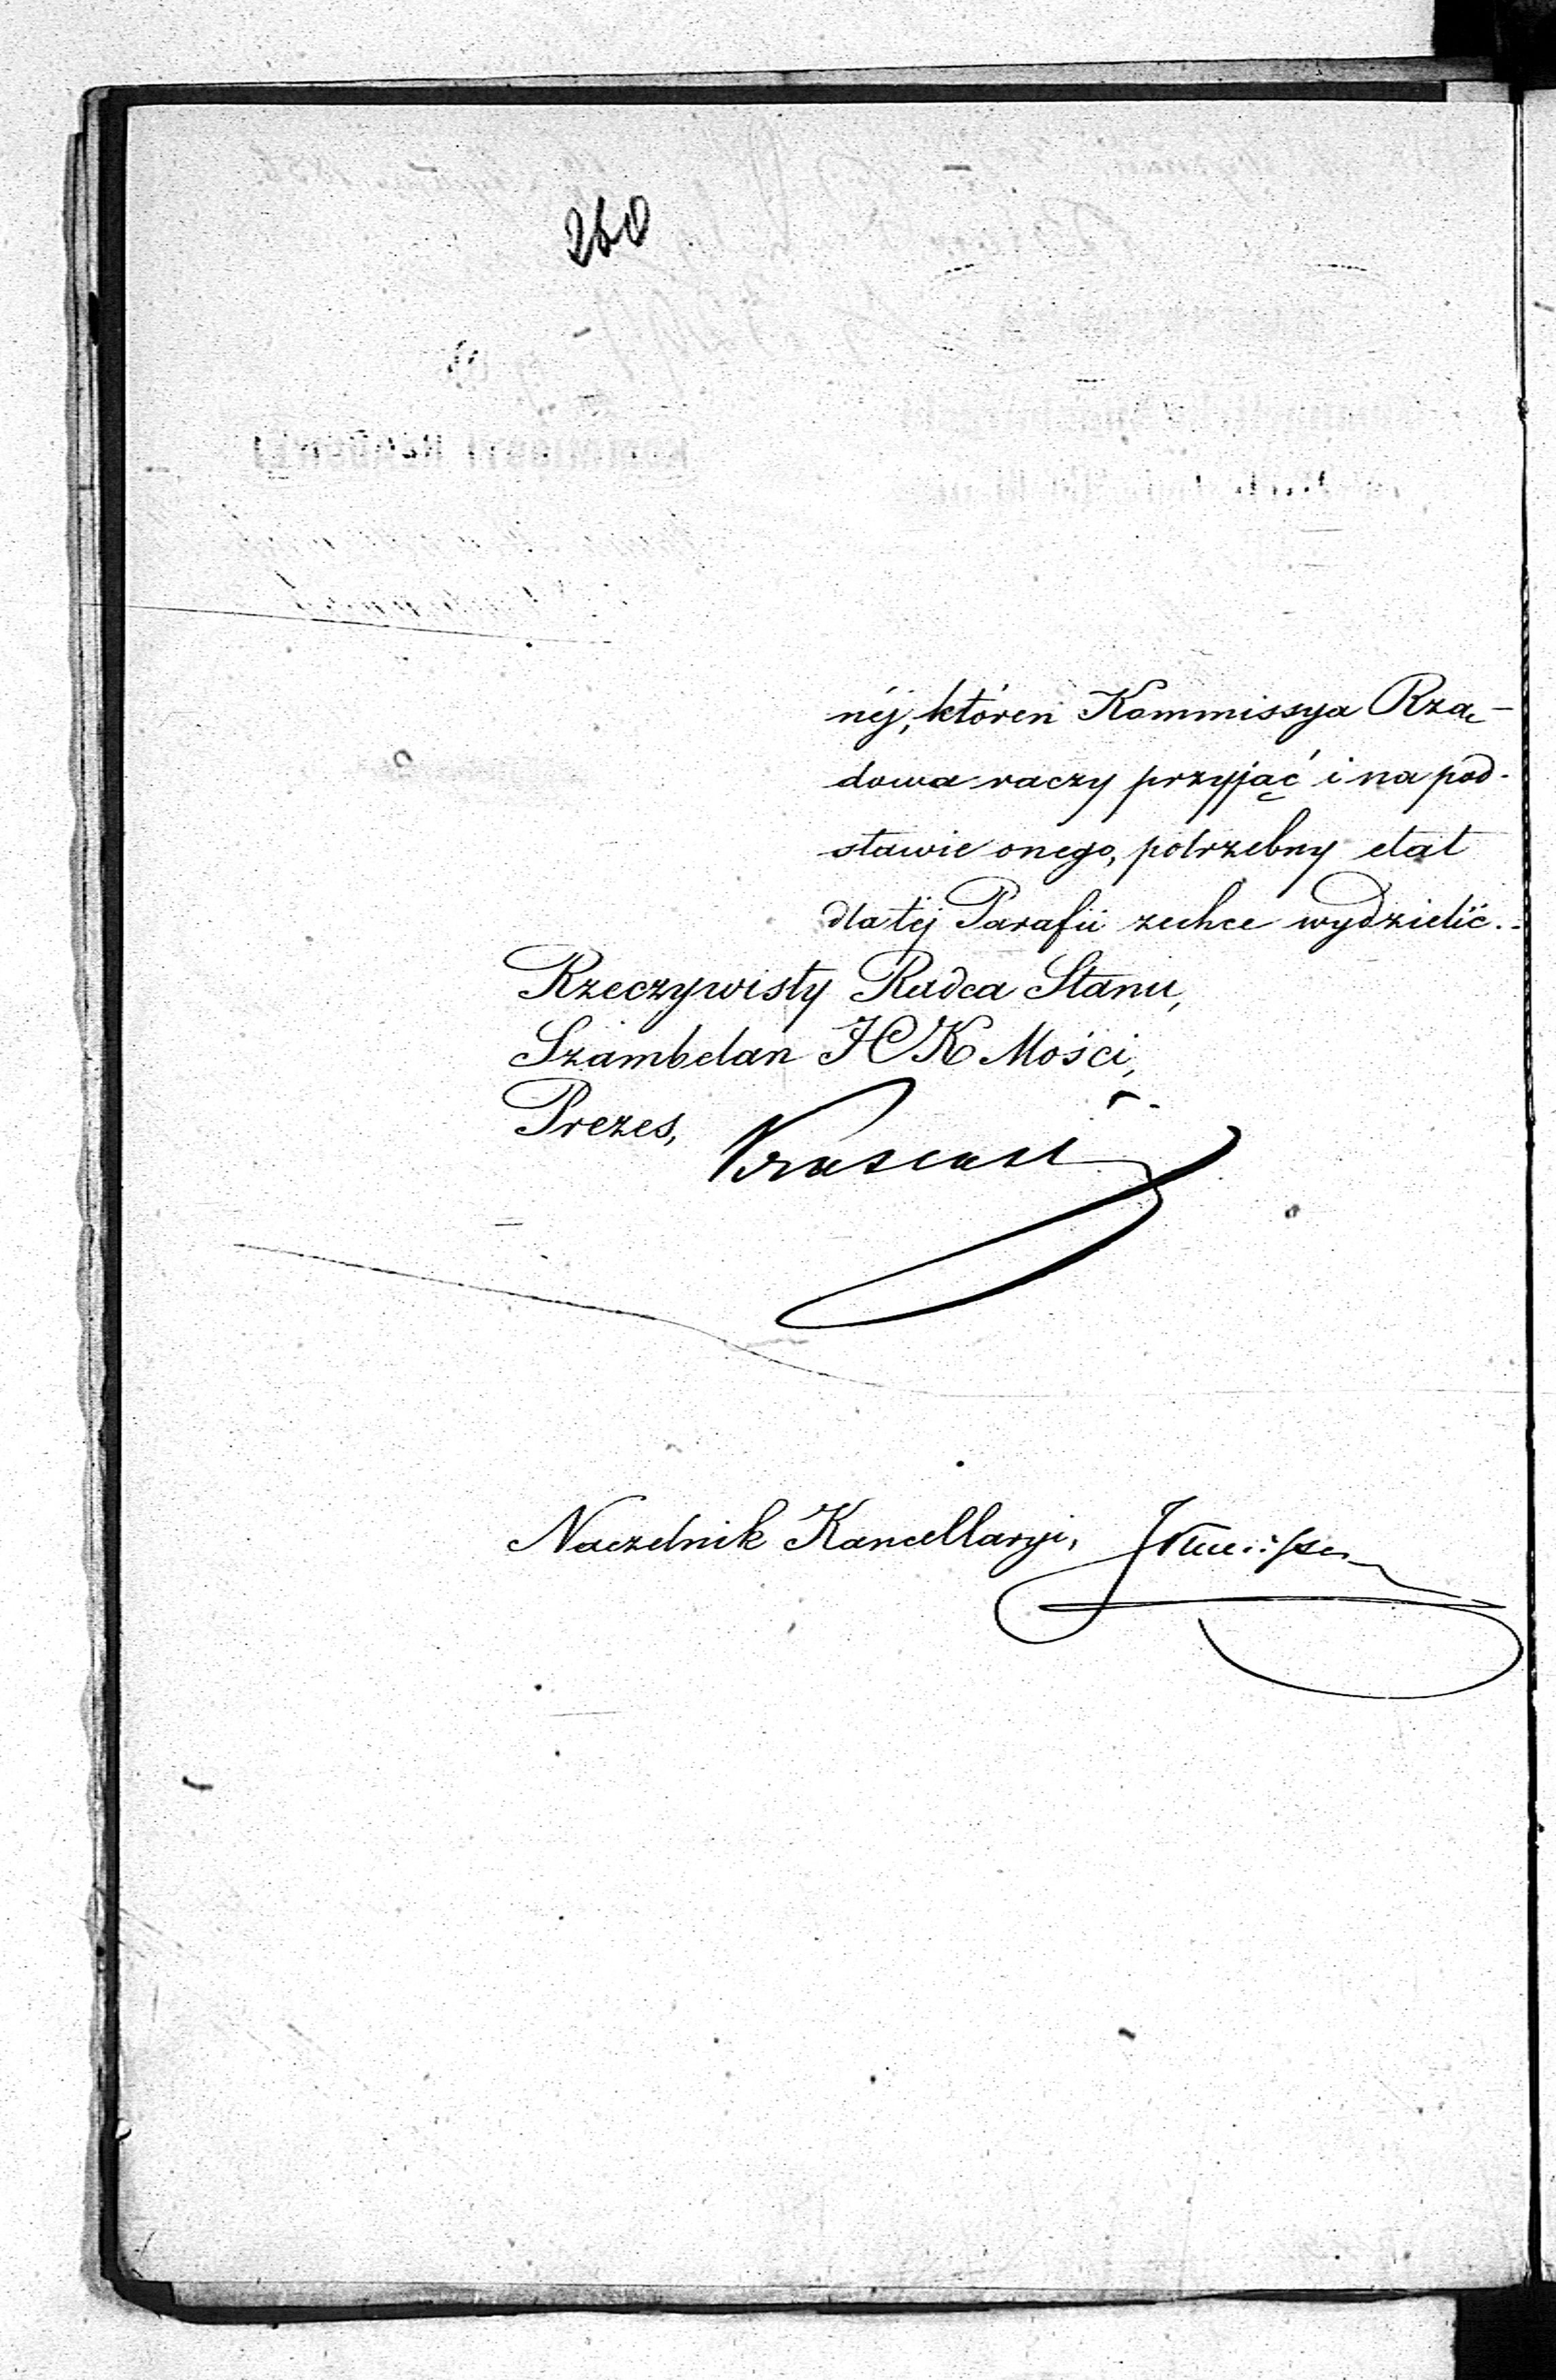 260
néj, któren Kommissya Rzą-
dowa raczy przyjąć i na pod-
stawie onego, potrzebny etat
dla téj Parafii zechce wydzielić.
Rzeczywisty Radca Stanu,
Szambelan JCK Mości,
Prezes,
Naczelnik Kancellaryi,